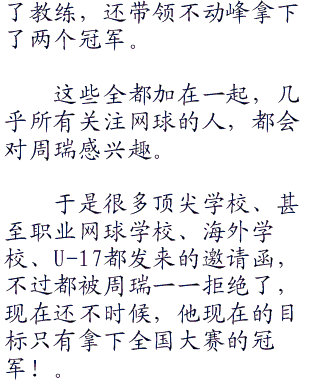 了教练，还带领不动峰拿下
了两个冠军。
这些全都加在一起，几
乎所有关注网球的人，都会
对周瑞感兴趣。
于是很多顶尖学校、甚
至职业网球学校、海外学
校、U-17都发来的邀请函，
不过都被周瑞一一拒绝了，
现在还不时候，他现在的目
标只有拿下全国大赛的冠
军！。